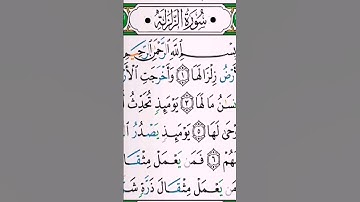 سُورَةُ الزَّلْزَلَةِ
سْمِ ٱللَّهِ ٱلرَّحْمَٰنِ ٱلرَّحِيمِ
رْضُ زِلْزَالَهَا ١ وَأَخْرَجَتِ ٱلْأَرْ
نسَٰنُ مَا لَهَا ٣ يَوْمَئِذٍ تُحَدِّثُ أَ
حَىٰ لَهَا ٥ يَوْمَئِذٍ يَصْدُرُ ٱل
هُمْ ٦ فَمَن يَعْمَلْ مِثْقَا
ن يَعْمَلْ مِثْقَالَ ذَرَّةٍ شَ